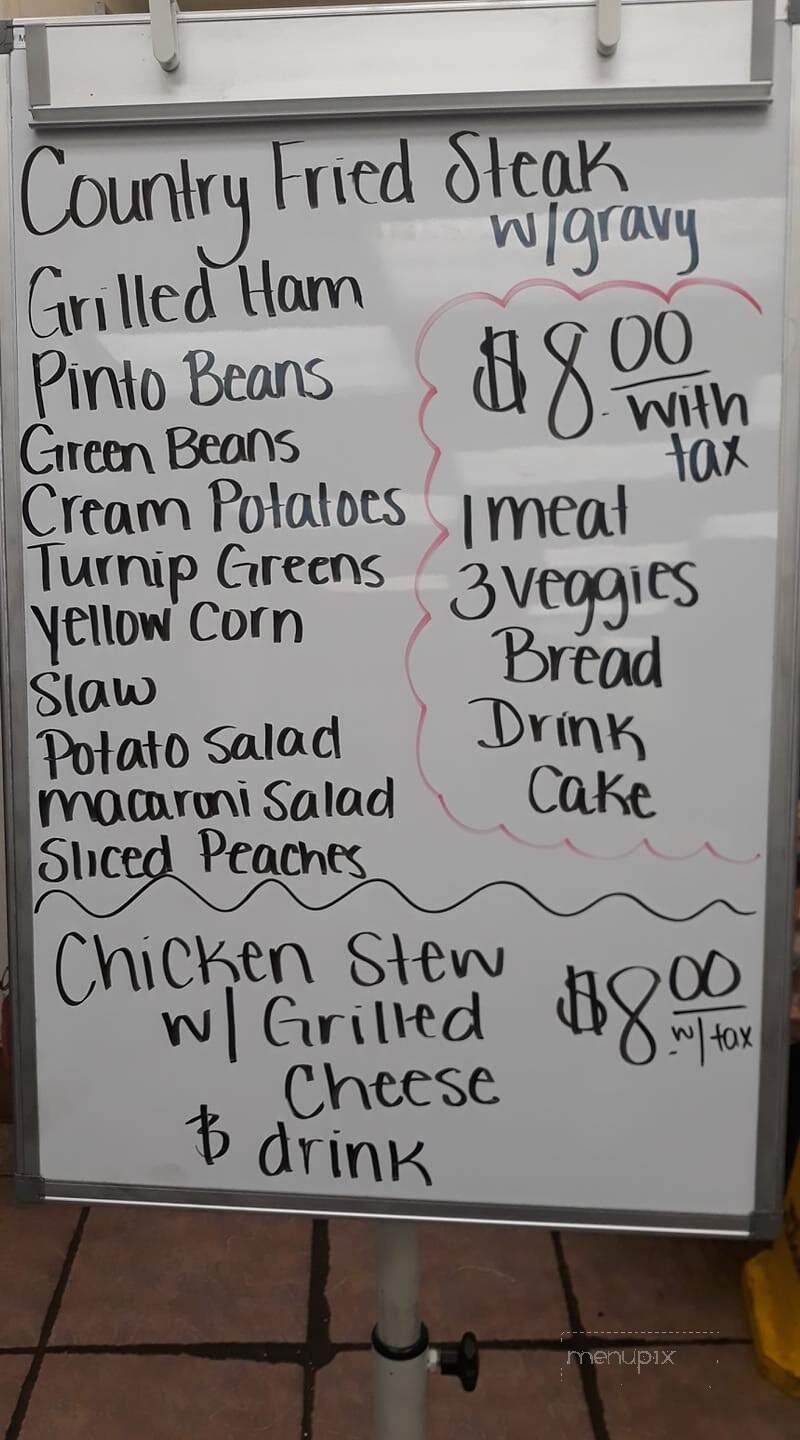 Country Fried Steak
w/gravy
Grilled Ham
Pinto Beans
Green Beans
Cream Potatoes
Turnip Greens
Yellow Corn
Slaw
Potato Salad
Macaroni Salad
Sliced Peaches
$8.00
with
tax
1 meat
3 veggies
Bread
Drink
Cake
Chicken Stew
w/ Grilled
Cheese
& drink
$8.00
w/ tax
menupix